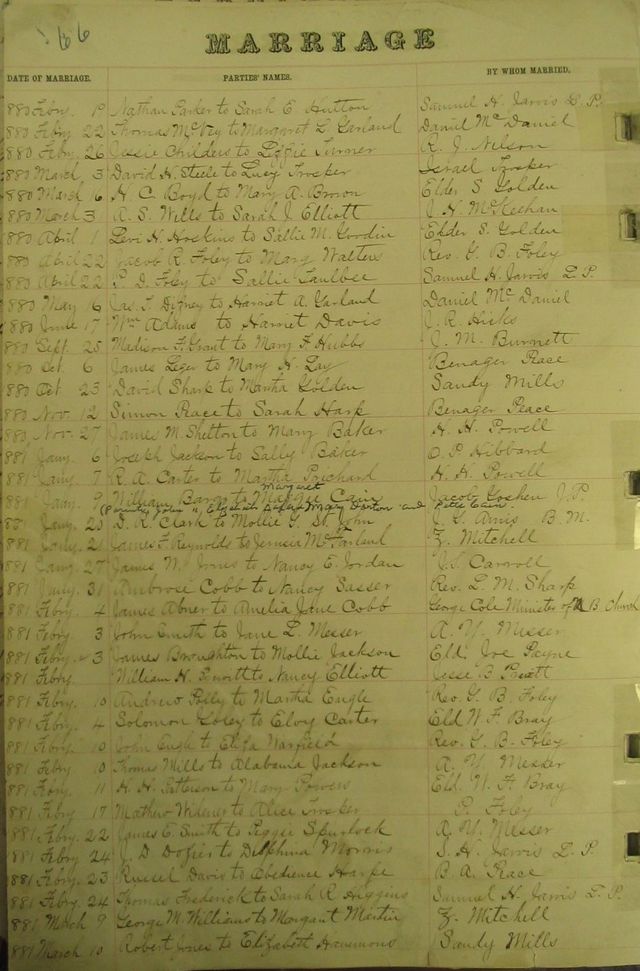 66
MARRIAGE
DATE OF MARRIAGE. PARTIES' NAMES. BY WHOM MARRIED.
880 Febry. 19 Nathan Parker to Sarah E. Hutton Samuel H. Jarvis L. P.
880 Febry 22 Thomas McVey to Margaret L. Garland Daniel Mc Daniel
880 Feby. 26 Jessie Childers to Lizzie Turner R. J. Nelson
880 March 3 David H. Steele to Lucy Trosper Israel Trosper
880 March 16 H. C. Boyd to Mary A. Brown Elder S. Golden
880 March 31 A. S. Wills to Sarah J. Elliott J. H. McKeehan
880 April 1 Levi H. Hoskins to Sallie M. Goodin Elder S. Golden
880 April 22 Jacob R. Foley to Mary Walters Rev. G. B. Foley
880 April 22 P. D. Foley to Sallie Faulbee Samuel H. Jarvis L. P.
880 May 16 Jas. T. Dizney to Harriet A. Garland Daniel Mc Daniel
880 June 17 Wm Adams to Harriet Davis J. R. Hicks
880 Sept. 25 Madison F. Grant to Mary F. Hubbs J. M. Burnett
880 Oct. 6 James Leger to Mary H. Lay Benager Peace
880 Oct 23 David Sharp to Martha Golden Sandy Mills
880 Nov. 12 Simon Peace to Sarah Harp Benager Peace
880 Nov. 27 James M. Shelton to Mary Baker H. H. Powell
881 Jany. 6 Joseph Jackson to Sally Baker O. P. Hibbard
881 Jany. 7 R. A. Carter to Martha Prichard H. H. Powell
Margaret
881 Jany. 9 William to Maggie Cain Jacob Goshen J. P.
Mary and Cain
881 Jany. 20 D. R. Clark to Mollie G. St. John J. L. Amis B. M.
881 Jany. 21 James F. Reynolds to McFarland Z. Mitchell
881 Jany. 27 James W. Jones to Nancy E. Jordan J. S. Carroll
881 Jany. 31 Ambrose Cobb to Nancy Sasser Rev. L. M. Sharp
881 Febry. 4 James Abner to Amelia Jane Cobb George Cole Minister of B Church
881 Febry 3 John Smith to Jane L. Messer A. Y. Messer
881 Febry. 3 James Broughton to Mollie Jackson Eld. Joe Payne
881 Febry William H. to Nancy Elliott Jesse B.
881 Febry. 10 Andrew Polly to Martha Engle Rev. G. B. Foley
881 Febry. 4 Solomon to Elvy Carter Eld W. F. Bray
881 Febry. 10 John Engle to Eliza Warfield Rev. G. B. Foley
881 Febry. 10 Thomas Mills to Alabama Jackson A. Y. Messer
881 Febry. 11 H. H. Patterson to Mary Powers Eld. W. F. Bray
881 Feby 17 Mathew Widener to Alice Trosper P. Foley
881 Febry. 22 James C. Smith to Peggie Spurlock A. Y. Messer
881 Feby 24 J. D. Dozier to Delphina Morris S. H. Jarvis L. P.
881 Febry. 23 Russel Davis to Obedience Harpe B. A. Peace
881 Febry. 24 Thomas Frederick to Sarah R. Higgins Samuel H. Jarvis L. P.
881 March 9 George W. Williams to Margaret Martin Z. Mitchell
881 March 10 Robert Jones to Elizabeth Hammons Sandy Mills